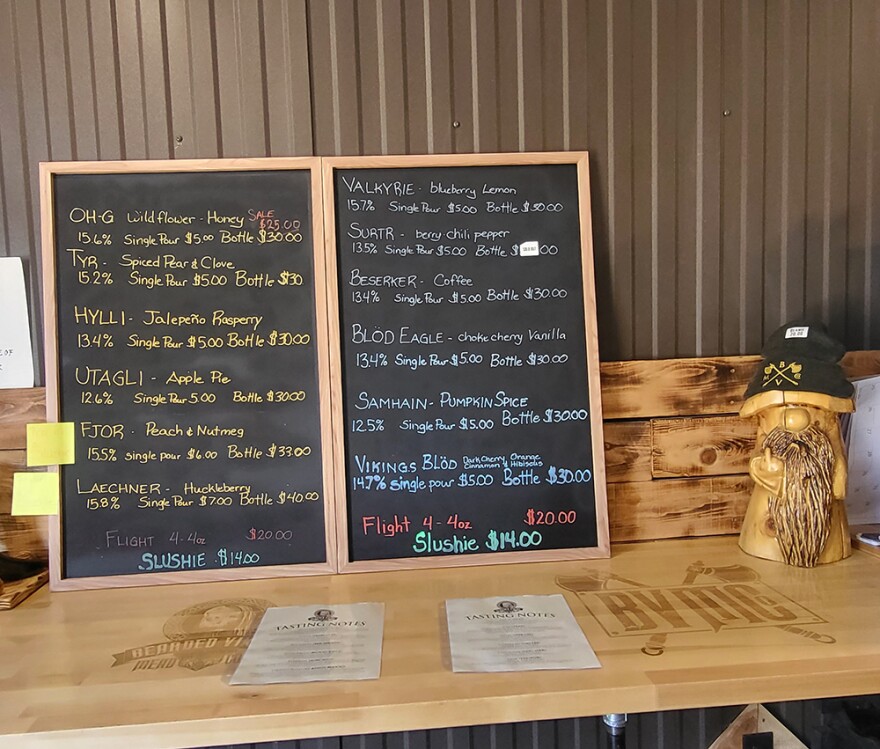 OH-G Wildflower - Honey SALE $25.00
15.6% Single Pour $5.00 Bottle $30.00
TYR - Spiced Pear & Clove
15.2% Single Pour $5.00 Bottle $30
HYLLI - Jalepeño Rasperry
13.4% Single Pour $5.00 Bottle $30.00
UTAGLI - Apple Pie
12.6% Single Pour 5.00 Bottle $30.00
FJOR - Peach & Nutmeg
15.5% Single pour $6.00 Bottle $33.00
LAECHNER - Huckleberry
15.8% Single Pour $7.00 Bottle $40.00
FLIGHT 4-4oz $20.00
SLUSHIE $14.00
VALKYRIE - blueberry Lemon
15.7% Single Pour $5.00 Bottle $30.00
SURTR - berry chili pepper
13.5% Single Pour $5.00 Bottle $ 00
BESERKER - Coffee
13.4% Single Pour $5.00 Bottle $30.00
BLÖD EAGLE - chokecherry Vanilla
13.4% Single Pour $5.00 Bottle $30.00
SAMHAIN - PUMPKIN SPICE
12.5% Single Pour $5.00 Bottle $30.00
VIKINGS BLÖD Dark Cherry, Orange
Cinnamon & Hibiscus
14.7% Single pour $5.00 Bottle $30.00
Flight 4-4oz $20.00
Slushie $14.00
TASTING NOTES
TASTING NOTES
BEARDED
MEAD